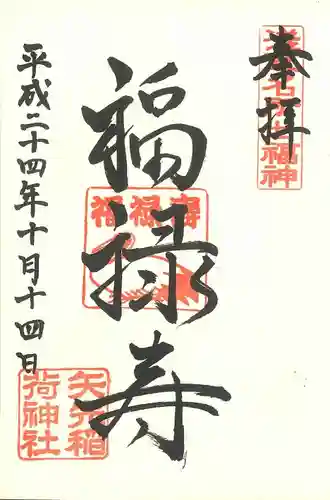 奉拝
福禄寿
福禄寿
平成二十四年十月十四日
矢先稲
荷神社